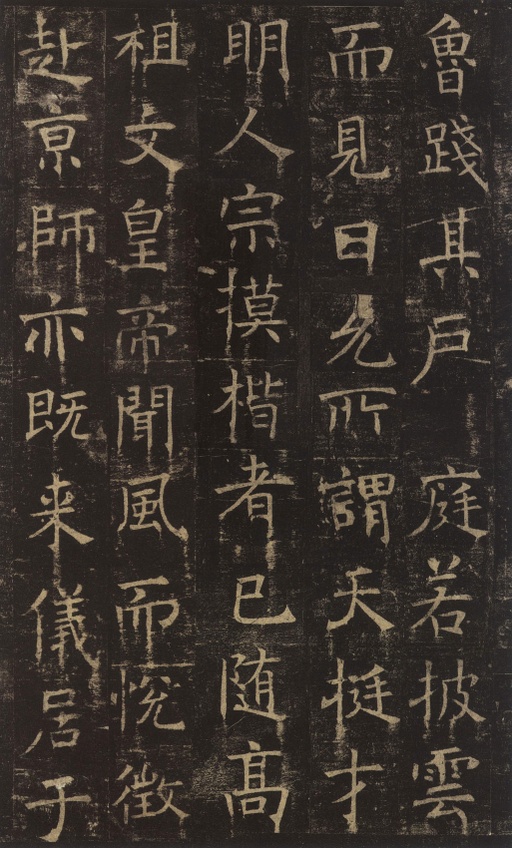 魯踐其戶庭若披雲
而見日允所謂天挺才
明人宗摸楷者已随髙
祖文皇帝聞風而悅徵
赴亰師亦既来儀居于